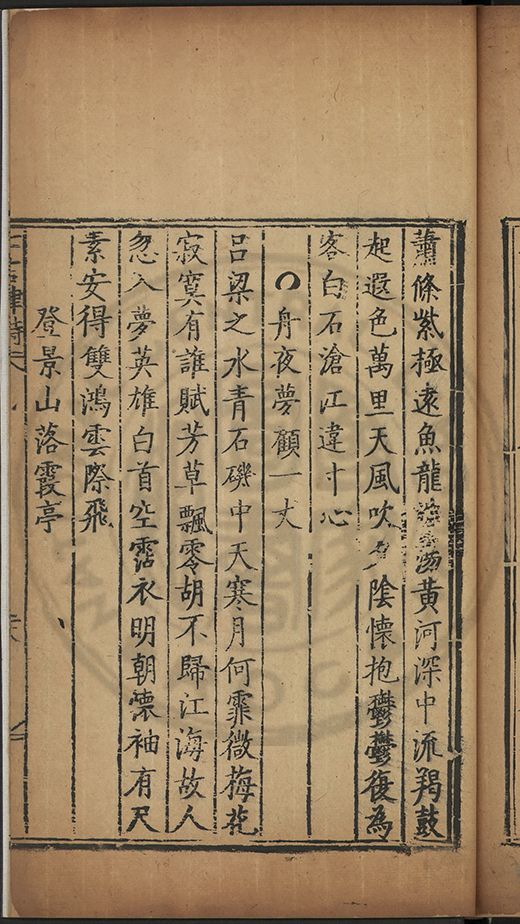 蕭條紫極遠魚龍蕩黃河深中流羯鼓
起遐色萬里天風吹夕陰懷抱鬱鬱復為
客白石滄江違寸心
舟夜夢顧一丈
呂梁之水青石磯中天寒月何霏微梅花
寂寞有誰賦芳草飄零胡不歸江海故人
忽入夢英雄白首空霑衣明朝懷袖有尺
素安得雙鴻雲際飛
登景山落霞亭